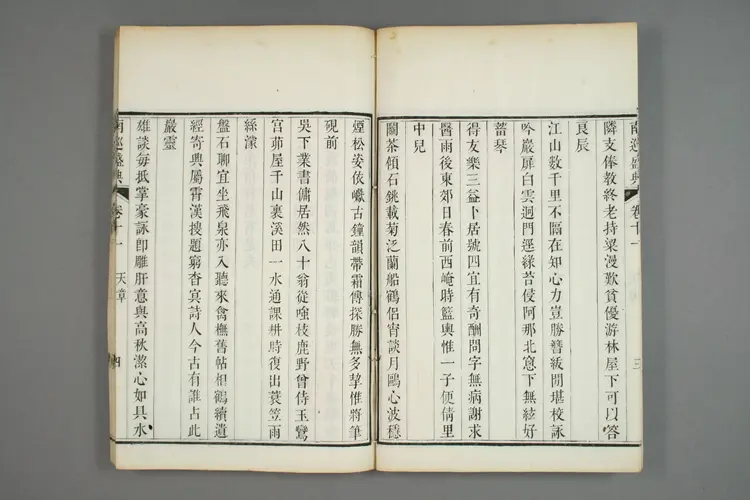 南巡盛典 卷十一 三
隣支俸教終老持粱漫歎貧優游林屋下可以答
良辰
江山數千里不隔在知心力豈勝簪紱閒堪校詠
吟巖扉白雲迥門逕綠苔侵阿那北窻下無絃好
蓄琴
得友樂三益卜居號四宜有奇酬問字無病謝求
醫雨後東郊日春前西崦時籃輿惟一子便倩里
中兒
闘茶傾石銚載菊泛蘭船鶴侶宵談月鷗心波穩
煙松姿依巘古鐘韻帶霜傳探勝無多挈惟將筆
硯前
吳下業書傭居然八十翁從唫枝鹿野曾侍玉鸞
宮茆屋千山裏溪田一水通課耕時復出蓑笠雨
絲濛
盤石聊宜坐飛泉亦入聽來禽橅舊帖相鶴續遺
經寄興屬霄漢搜題窮杳冥詩人今古有誰占此
巖靈
雄談每抵掌豪詠卽雕肝意與高秋潔心如具水
南巡盛典 卷十一 天章 四